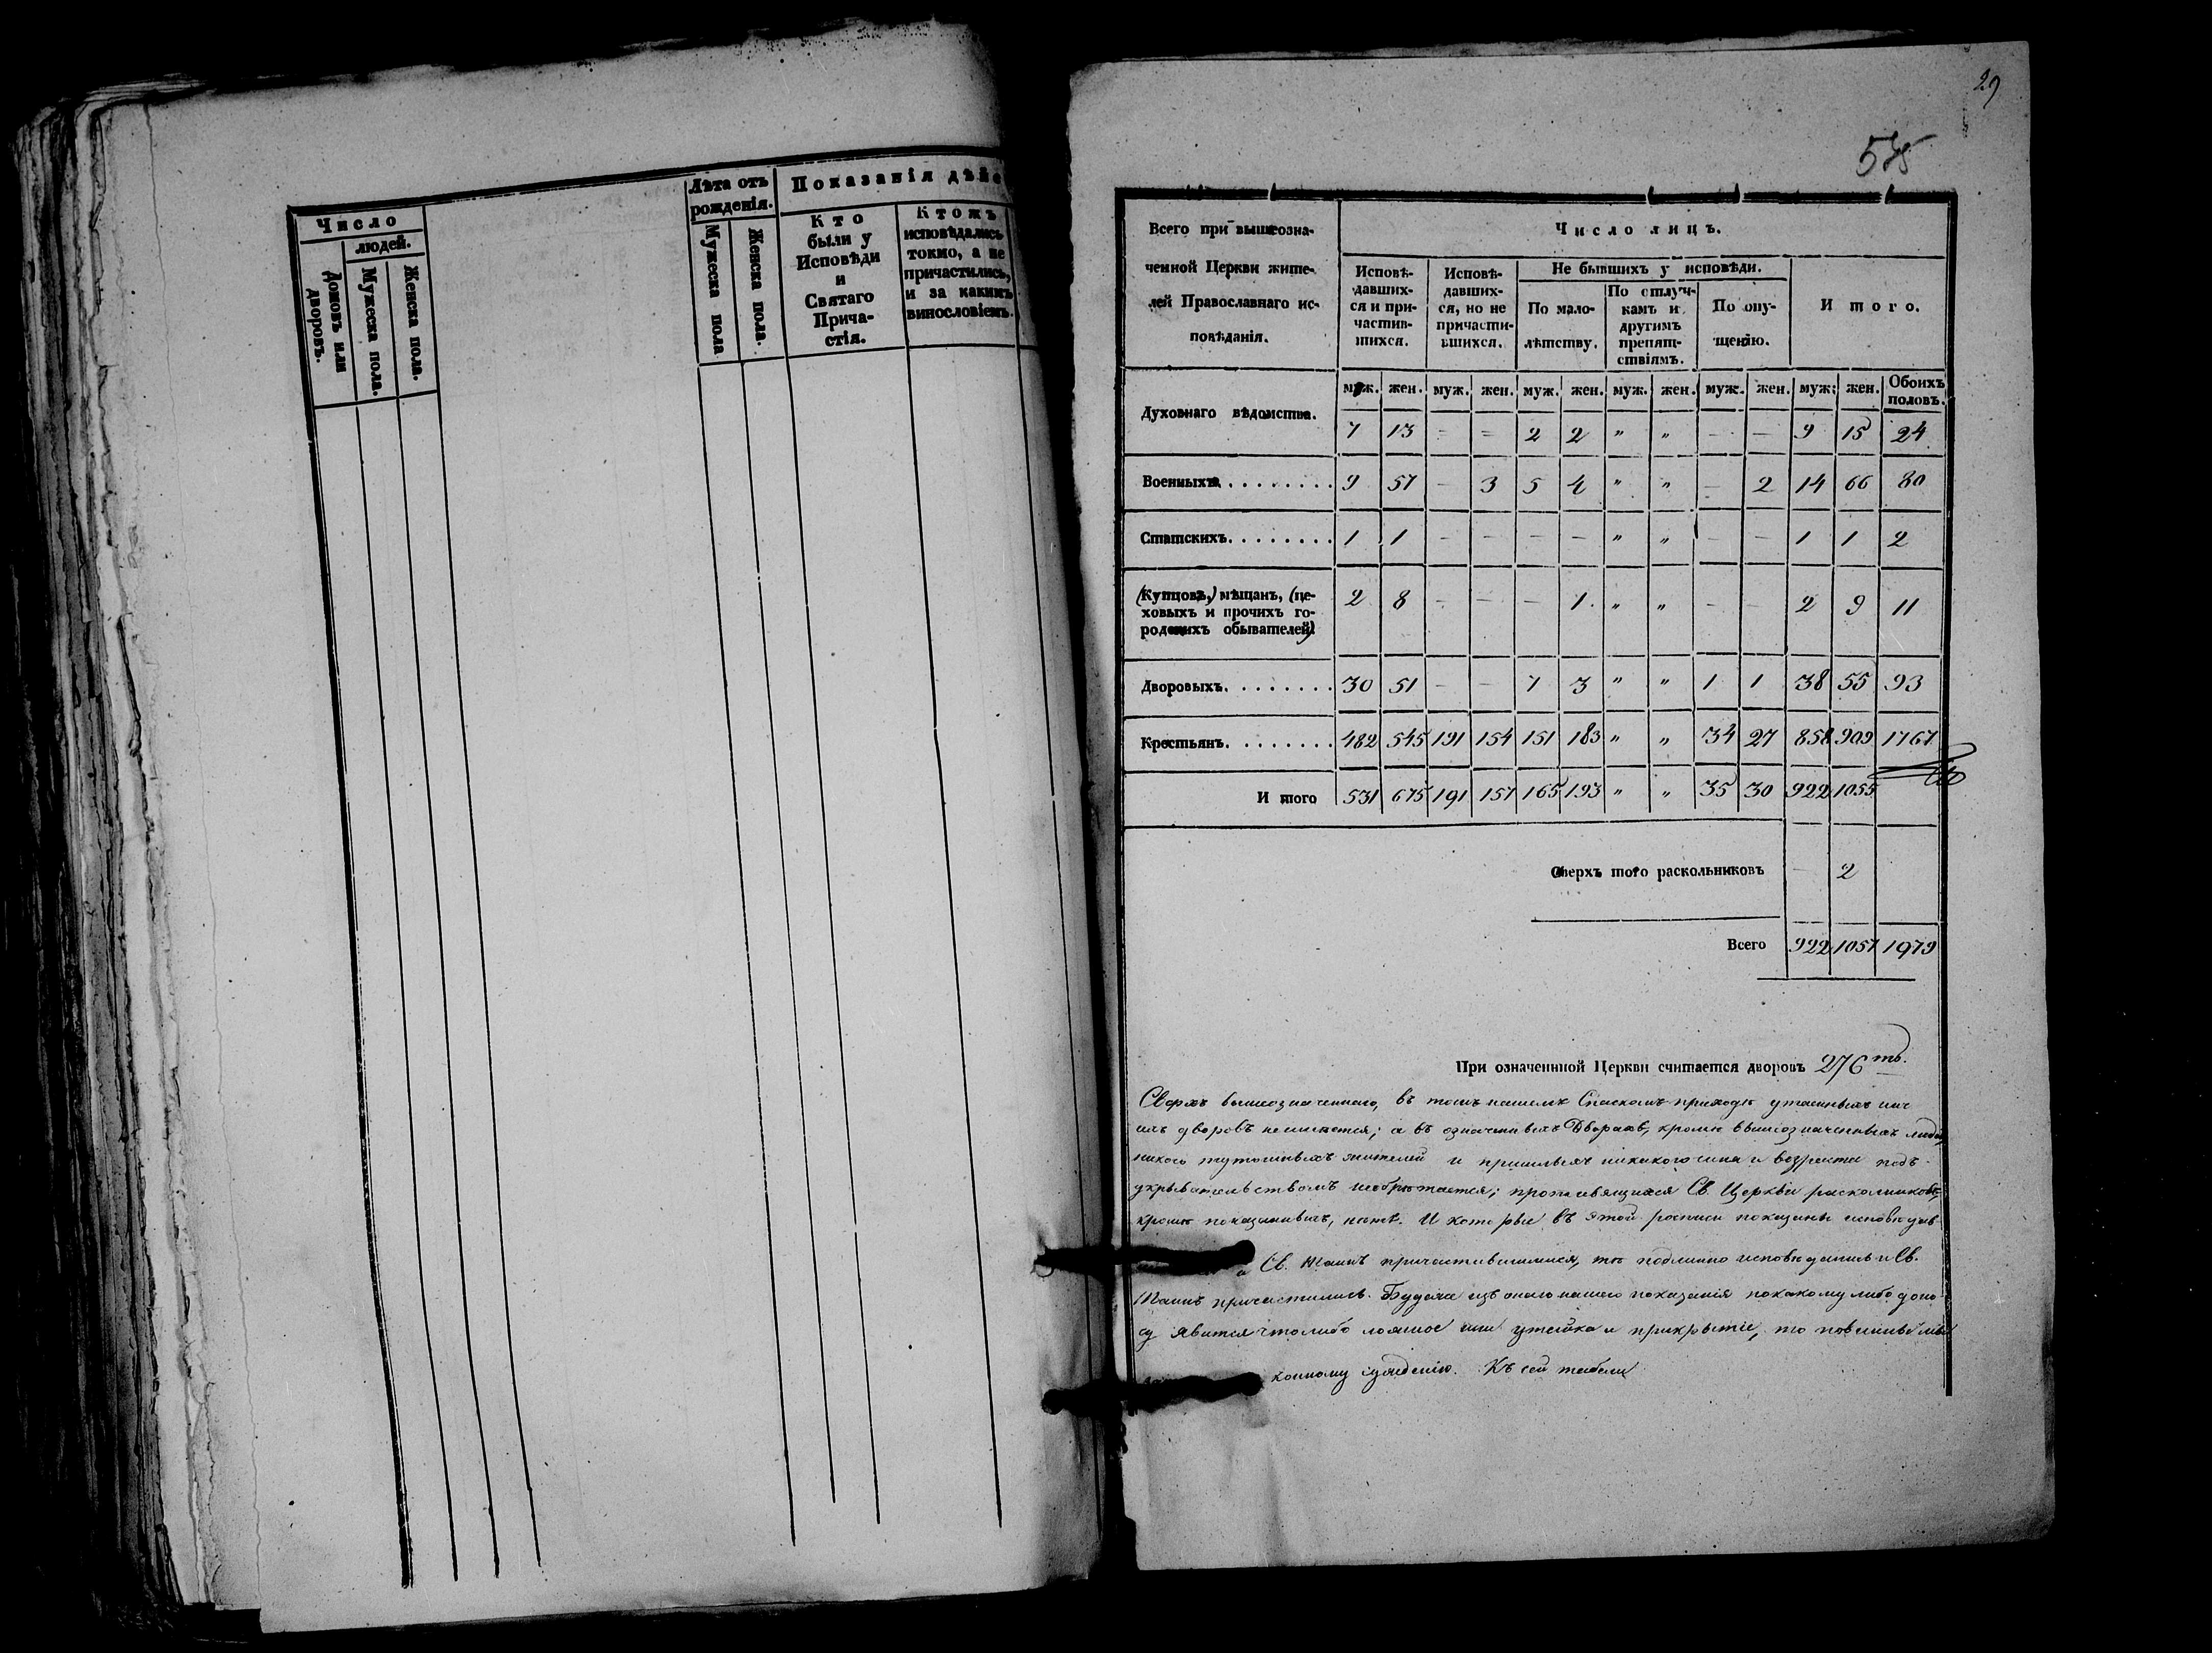 Число
людей.
Домовъ или дворовъ.
Мужеска пола.
Женска пола.
Лѣта отъ
рожденія.
Мужеска пола
Женска пола.
Показанія дѣйс
Кто
были у
Исповѣди
и
Святаго
Прича-
стія.
Ктожъ
исповѣдались
токмо, а не
причастились,
и за какимъ
винословіемъ.
29
Всего при вышеозна-
ченной Церкви жите-
лей Православнаго ис-
повѣданія.
Число лицъ.
Исповѣ-
давших-
ся и при-
частив-
шихся.
Исповѣ-
давших-
ся, но не
причасти-
вшихся.
Не бывшихъ у исповѣди.
По мало-
лѣтству.
По отлуч-
камъ и
другимъ
препят-
ствіямъ.
По опу-
щенію.
Итого.
муж. жен. муж. жен. муж. жен. муж. жен. муж. жен. муж. жен. Обоихъ половъ.
Духовнаго вѣдомства. 7 13 = = 2 2 " " — — 9 15 24
Военныхъ. 9 57 — 3 5 4 " " — 2 14 66 80
Статскихъ. 1 1 — — — — " " — — 1 1 2
(Купцовъ,) мѣщанъ, (це-
ховыхъ и прочихъ го-
родскихъ обывателей) 2 8 — — — 1 " " — — 2 9 11
Дворовыхъ. 30 51 — — 7 3 " " 1 1 38 55 93
Крестьянъ. 482 545 191 154 151 183 " " 34 27 858 909 1767
Итого 531 675 191 157 165 193 " " 35 30 922 1055
Сверхъ того раскольниковъ — 2
Всего 922 1057 1979
При означенной Церкви считается дворовъ 276 ть.
Сверхъ вышеозначеннаго, въ томъ нашемъ Спаскомъ приходѣ утаенныхъ
дворовъ неимѣется; а въ означенныхъ Дворахъ, кромѣ вышеозначенныхъ людей
никого тутошныхъ жителей и пришлыхъ никакого чина и возраста подъ
укрывательствомъ необрѣтается; противящихся Св. Церкви раскольниковъ,
кромѣ показанныхъ, нѣтъ. И которые въ этой росписи показаны исповѣдав-
а Св. Таинъ причастившимися, тѣ подлинно исповѣдались и Св.
Таинъ причастились. Будеже изъ онаго нашего показанія покакому либо доно-
су явится чтолибо ложное или утайка и прикрытіе, то повинны мы
конному сужденію. Къ сей табели